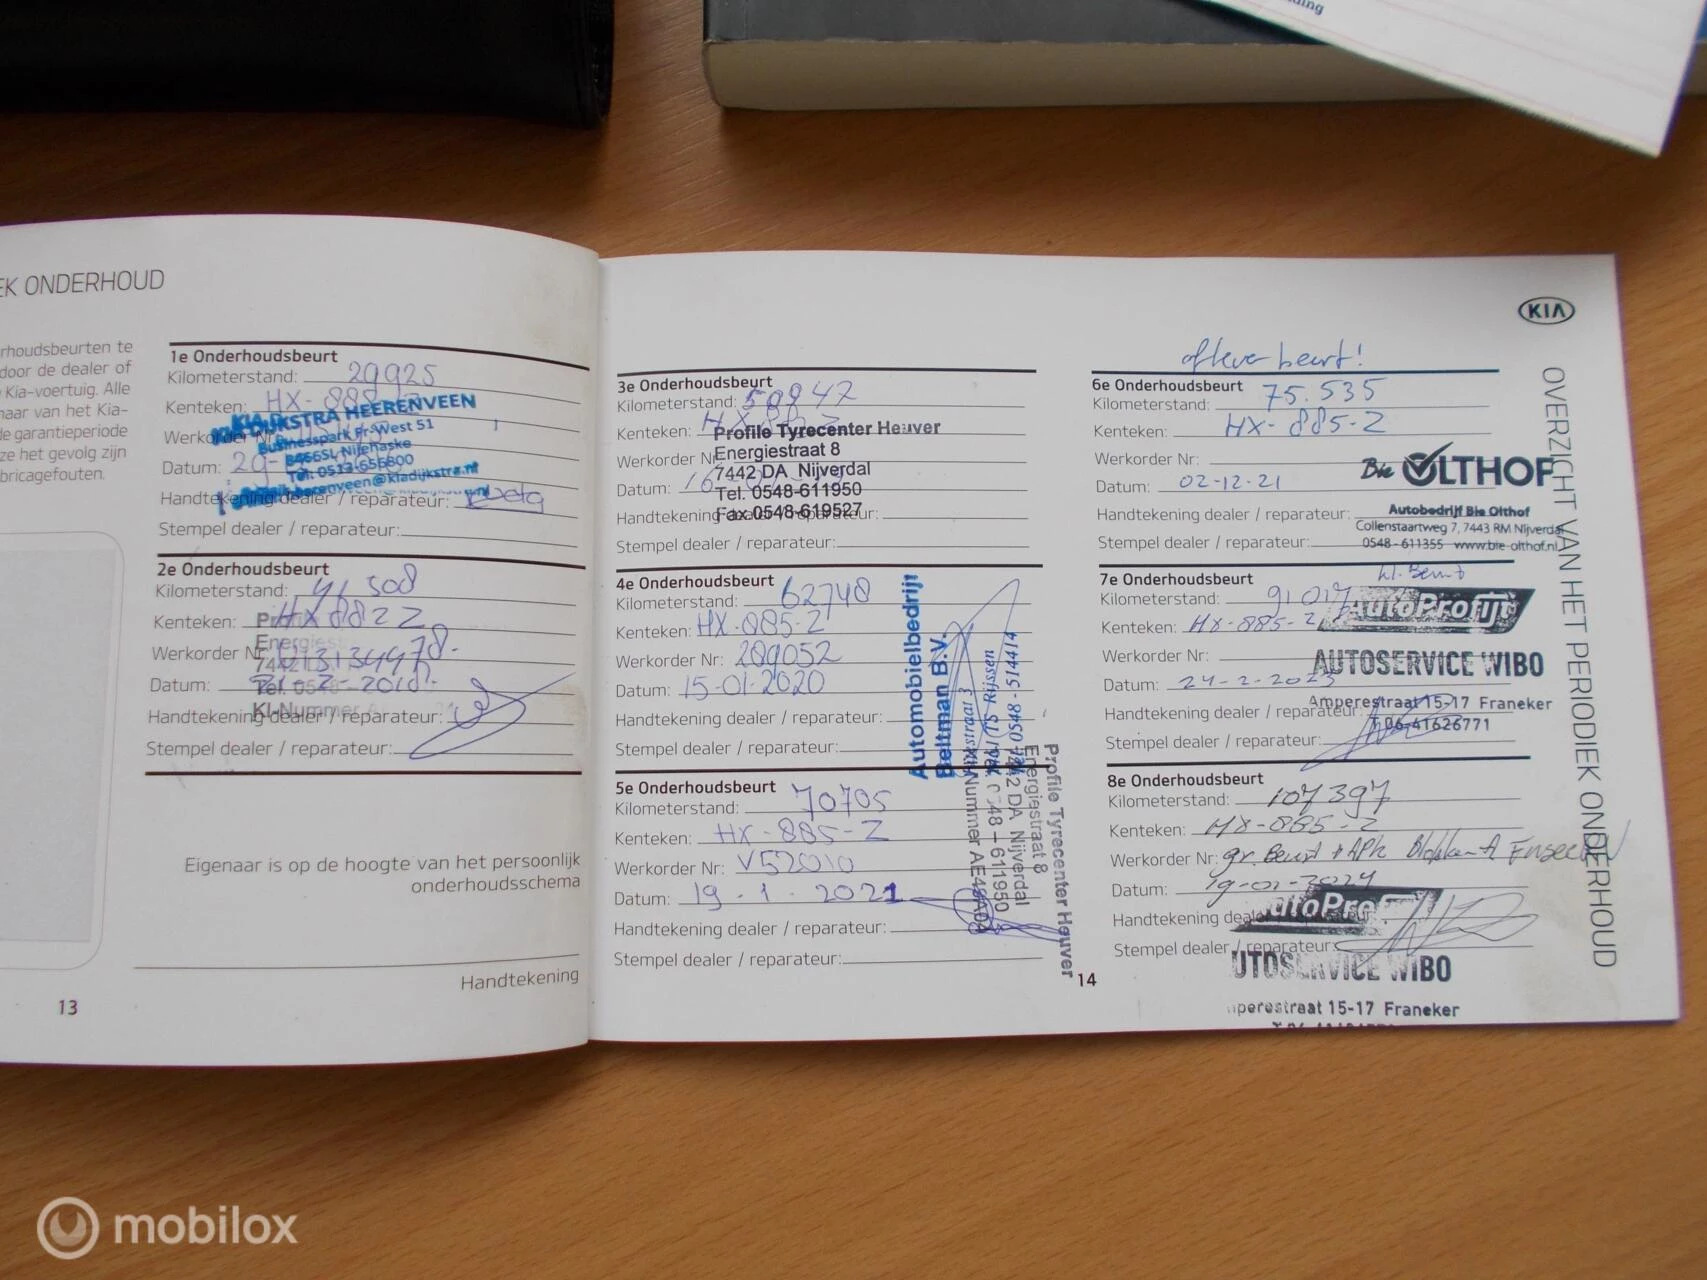 EK ONDERHOUD
rhoudsbeurten te
door de dealer of
Kia-voertuig. Alle
naar van het Kia-
de garantieperiode
ze het gevolg zijn
bricagefouten.
1e Onderhoudsbeurt
Kilometerstand: 29925
Kenteken: HX-
KIA DIJKSTRA HEERENVEEN
Businesspark Fr-West 51
8466SL Nijehaske
Tel: 0513-656800
heerenveen@kiadijkstra.nl
Werkorder Nr:
Datum: 29-
Handtekening dealer / reparateur:
Stempel dealer / reparateur:
2e Onderhoudsbeurt
Kilometerstand: 41508
Kenteken: HX 882 Z
Werkorder Nr:
Datum: 2018
Tel. 0548
KI-Nummer
Handtekening dealer / reparateur:
Stempel dealer / reparateur:
Eigenaar is op de hoogte van het persoonlijk
onderhoudsschema
Handtekening
13
3e Onderhoudsbeurt
Kilometerstand:
Kenteken: HX
Werkorder Nr:
Datum: 16
Handtekening dealer / reparateur:
Stempel dealer / reparateur:
Profile Tyrecenter Heuver
Energiestraat 8
7442 DA Nijverdal
Tel. 0548-611950
Fax 0548-619527
4e Onderhoudsbeurt
Kilometerstand: 62748
Kenteken: HX-885-Z
Werkorder Nr: 289052
Datum: 15-01-2020
Handtekening dealer / reparateur:
Stempel dealer / reparateur:
Automobielbedrijf
Beltman B.V.
Rijssen
0548-514414
5e Onderhoudsbeurt
Kilometerstand: 70705
Kenteken: HX-885-Z
Werkorder Nr: V52010
Datum: 19-1-2021
Handtekening dealer / reparateur:
Stempel dealer / reparateur:
Profile Tyrecenter Heuver
Energiestraat 8
7442 DA Nijverdal
0548-611950
14
KIA
aflever beurt!
6e Onderhoudsbeurt
Kilometerstand: 75.535
Kenteken: HX-885-Z
Werkorder Nr:
Datum: 02-12-21
Handtekening dealer / reparateur:
Stempel dealer / reparateur:
Bie OLTHOF
Autobedrijf Bie Olthof
Collenstaartweg 7, 7443 RM Nijverdal
0548-611355 www.bie-olthof.nl
7e Onderhoudsbeurt
kl. Beurt
Kilometerstand: 91017
Kenteken: HX-885-Z
Werkorder Nr:
Datum: 24-2-2023
Handtekening dealer / reparateur:
Stempel dealer / reparateur:
AutoProfijt
AUTOSERVICE WIBO
Amperestraat 15-17 Franeker
T 06-41626771
8e Onderhoudsbeurt
Kilometerstand: 107397
Kenteken: HX-885-Z
Werkorder Nr: gr. Beurt + APK
Datum: 19-02-2024
Handtekening dealer / reparateur:
Stempel dealer / reparateur:
utoProf
UTOSERVICE WIBO
mperestraat 15-17 Franeker
OVERZICHT VAN HET PERIODIEK ONDERHOUD
mobilox